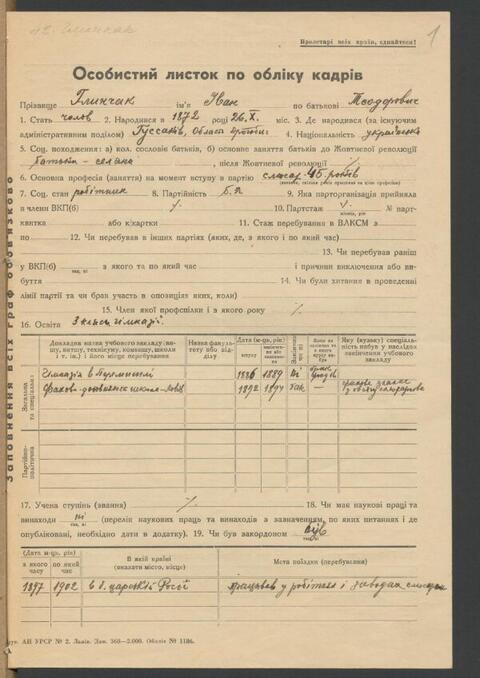 Пролетарі всіх країн, єднайтеся!
1
Особистий листок по обліку кадрів
Прізвище Глинчак ім'я Іван по батькові Теодорович
1. Стать чолов 2. Народився в 1872 році 26.X. міс. 3. Де народився (за існуючим
адміністративним поділом) Гуссаків, Область 4. Національність українська
5. Соц. походження: а) кол. сословіє батьків, б) основне заняття батьків до Жовтневої революції
батьки - селяни, після Жовтневої революції
6. Основна професія (заняття) на момент вступу в партію слюсар 45 років
7. Соц. стан робітник 8. Партійність Б.п 9. Яка парторганізація прийняла
в члени ВКП(б) 10. Партстаж № парт-
квитка або к/картки 11. Стаж перебування в ВЛКСМ з
по 12. Чи перебував в інших партіях (яких, де, з якого і по який час)
13. Чи перебував раніш
у ВКП(б) з якого та по який час і причини виключення або ви-
буття 14. Чи були хитання в проведенні
лінії партії та чи брав участь в опозиціях яких, коли)
15. Член якої профспілки і з якого року
16. Освіта 3 класи гімназії.
Докладна назва учбового закладу (ви-
шу, витшу, технікуму, комвишу, школи
і т. ін.) і його місце перебування
Назва факуль-
тету або від-
ділу
Дата (м-ць, рік)
вступу
Яку (вузьку) спеціальність
набув у наслідок
закінчення учбового
закладу
Загальна
та спеціальна:
Гімназія в Перемишлі 1886 1889 Ні
1892 1894 Так —
Партійно-
політична
17. Учена ступінь (звання) 18. Чи має наукові праці та
винаходи ні (перелік наукових праць та винаходів а зазначенням, по яких питаннях і де
опубліковані, необхідно дати в додатку). 19. Чи був закордоном був
Дата (м-ць, рік)
з якого часу
по який час
В якій країні
(вказати місто, місце)
Мета поїздки (перебування)
1897 1902 в б. царській Росії працював у робітнях і заводах
Заповнення всіх граф обов'язково
АН УРСР № 2. Львів. Зам. 360—2.000. Обліт № 1186.